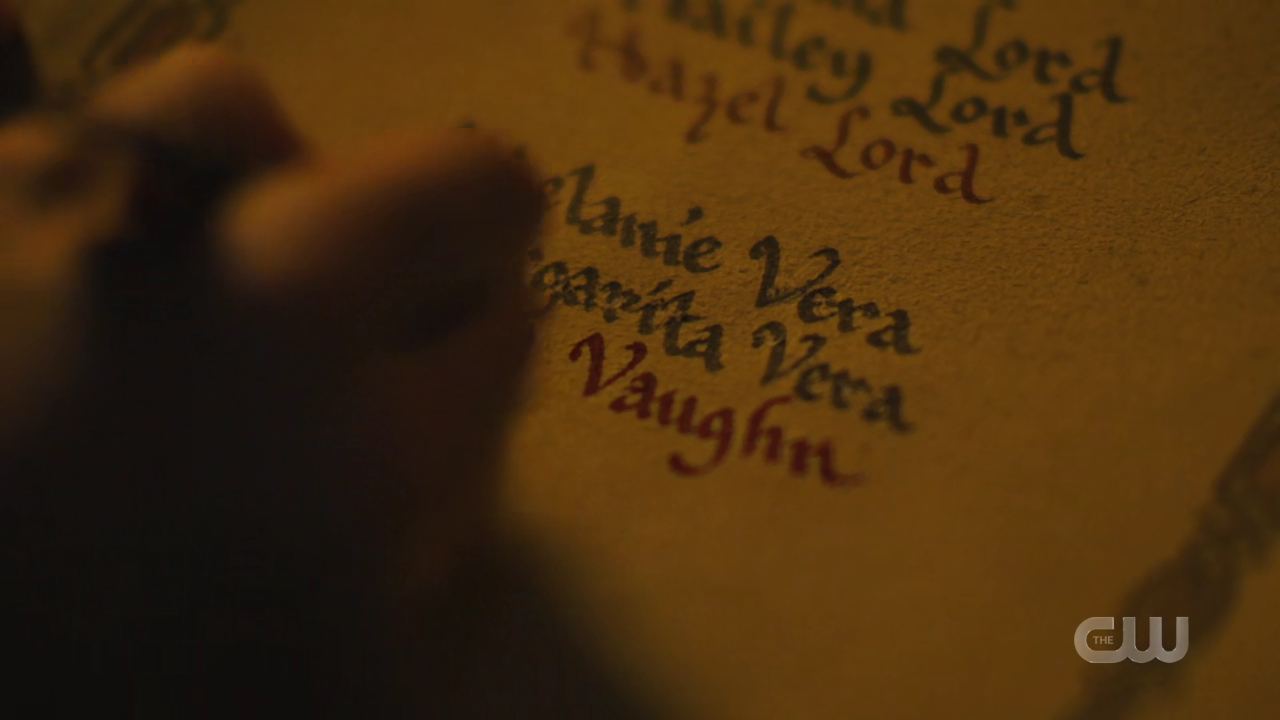 Lord
Hailey Lord
Hazel Lord
elanie Vera
garita Vera
Vaughn
THE CW